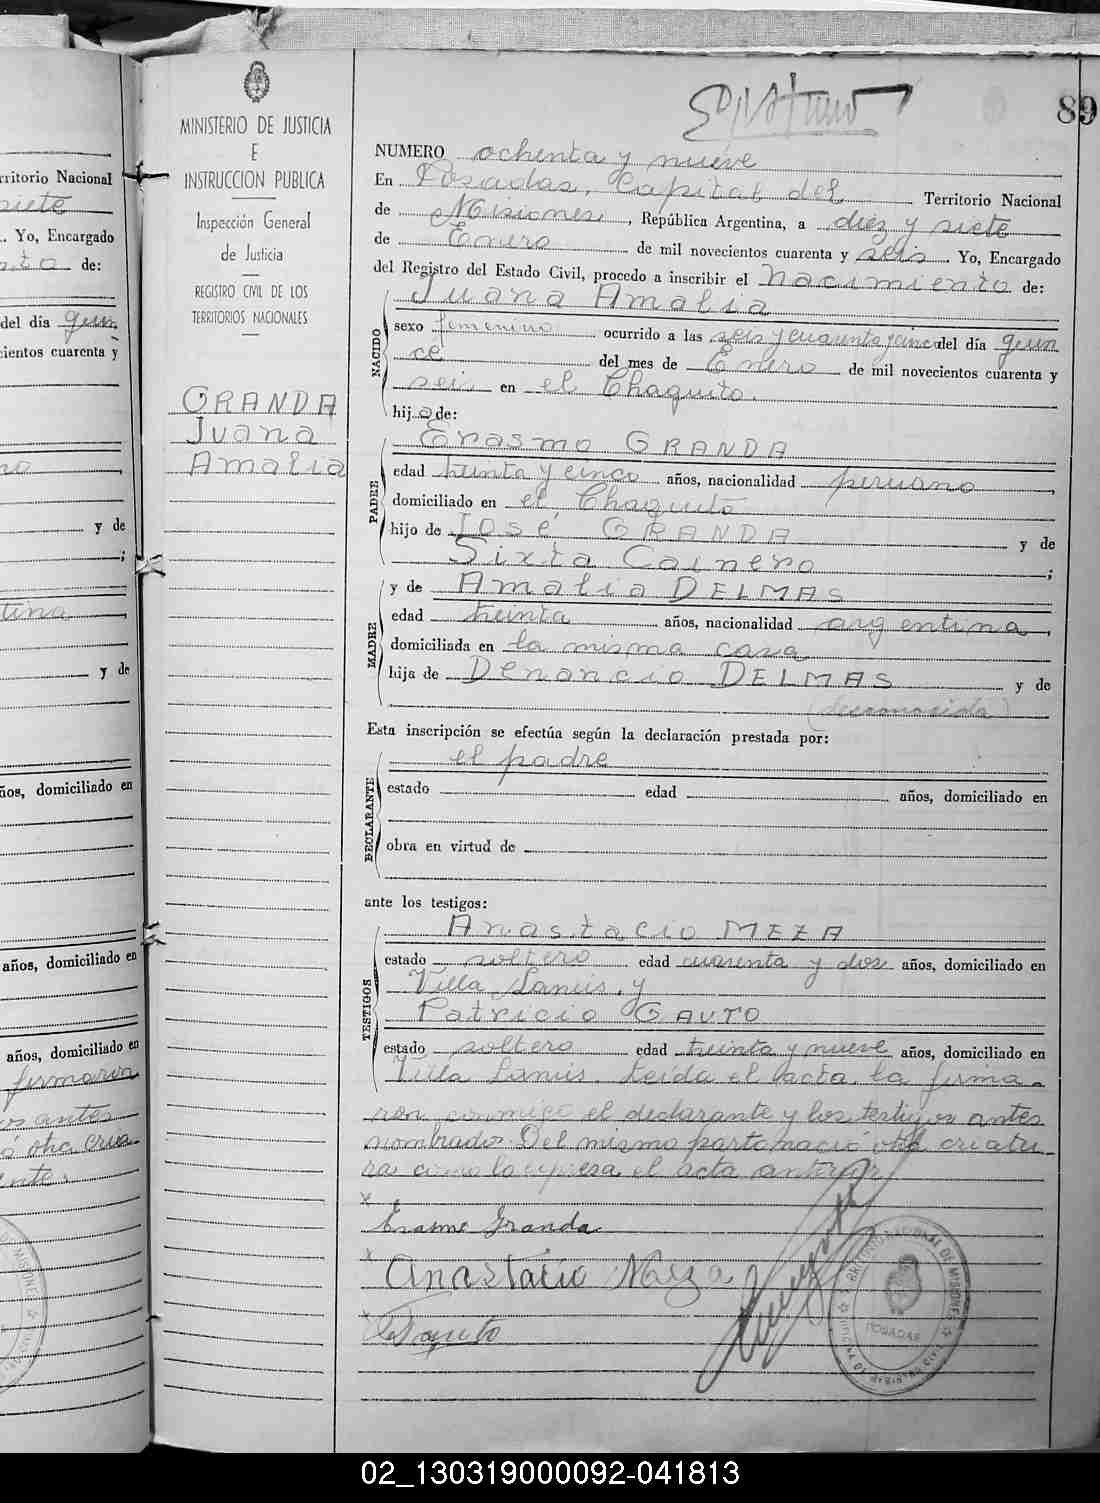 rritorio Nacional
siete
. Yo, Encargado
de:
del día quin
cientos cuarenta y
y de
tina
y de
ños, domiciliado en
años, domiciliado en
años, domiciliado en
firmaron
os antes
otra cria-
MINISTERIO DE JUSTICIA
E
INSTRUCCION PUBLICA
Inspección General
de Justicia
REGISTRO CIVIL DE LOS
TERRITORIOS NACIONALES
GRANDA
Juana
Amalia
89
NUMERO ochenta y nueve
En Posadas, Capital del Territorio Nacional
de Misiones, República Argentina, a diez y siete
de Enero de mil novecientos cuarenta y seis. Yo, Encargado
del Registro del Estado Civil, procedo a inscribir el nacimiento de:
NACIDO
Juana Amalia
sexo femenino ocurrido a las seis y cuarenta y cinco del día quin
ce del mes de Enero de mil novecientos cuarenta y
seis en el Chaquito.
hija de:
PADRE
Erasmo GRANDA
edad treinta y cinco años, nacionalidad peruano,
domiciliado en el Chaquito
hijo de José GRANDA y de
Sixta Cainero;
MADRE
y de Amalia DELMAS
edad treinta años, nacionalidad argentina,
domiciliada en la misma casa
hija de Venancio DELMAS y de
(desconocida)
Esta inscripción se efectúa según la declaración prestada por:
DECLARANTE
el padre
estado edad años, domiciliado en
obra en virtud de
ante los testigos:
TESTIGOS
Anastacio MEZA
estado soltero edad cuarenta y dos años, domiciliado en
Villa Lanús, y
Patricio GAUTO
estado soltero edad treinta y nueve años, domiciliado en
Villa Lanús. Leída el acta, la firma-
ron conmigo el declarante y los testigos antes
nombrados. Del mismo parto nació otra criatu-
ra como lo expresa el acta anterior
Erasmo Granda
Anastacio Meza
Gauto
TERRITORIO NACIONAL DE MISIONES
POSADAS
OFICINA DE REGISTRO CIVIL
02_130319000092-041813